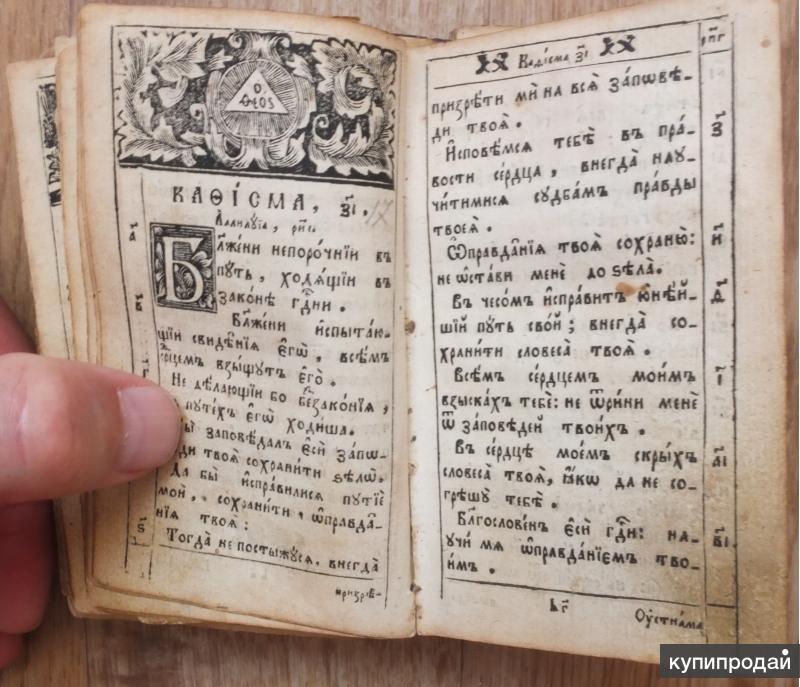 Ѳ҃ео́съ
КАѲІ́СМА, з҃і. 17
Аллилꙋ́їа, рн҃і
а҃
Бл҃же́ни непоро́чнїи въ
пꙋ́ть, ходѧ́щїи въ
зако́нѣ гд҃ни.
в҃
Бл҃же́ни испыта́ю-
щїи свидѣ́нїѧ є҆гѡ̀, всѣ́мъ
взы́щꙋтъ є҆го̀.
Не дѣ́лающїи бо без̾зако́нїѧ,
пꙋте́хъ є҆гѡ̀ ходи́ша.
заповѣ́далъ є҆сѝ за́пѡ-
твоѧ̀ сохрани́ти ѕѣлѡ̀.
Да бы̀ и҆спра́вилисѧ пꙋтїѐ
мой, сохрани́ти ѡ҆правда́-
нїѧ твоѧ̀:
ѕ҃
Тогда̀ не постыжꙋ́сѧ, внегда̀
призрѣ́-
Каѳі́сма з҃і
п҃г
призрѣ́ти мѝ на всѧ̀ за́пѡвѣ-
ди твоѧ̀.
з҃
И҆сповѣ́мсѧ тебѣ̀ въ пра́-
вости се́рдца, внегда̀ наꙋ-
чи́тимисѧ сꙋдба́мъ пра́вды
твоеѧ̀.
и҃
Ѡ҆правда́нїѧ твоѧ̀ сохраню̀:
не ѡ҆ста́ви менѐ до ѕѣла̀.
д҃
Въ чесо́мъ и҆спра́витъ ю҆нѣ́й-
шїй пꙋ́ть сво́й; внегда̀ со-
храни́ти словеса̀ твоѧ̀.
і҃
Всѣ́мъ се́рдцемъ мои́мъ
взыска́хъ тебѐ: не ѿри́ни менѐ
ѿ за́повѣдей твои́хъ.
а҃і
Въ се́рдцѣ мое́мъ скры́хъ
словеса̀ твоѧ̀, ꙗ҆́кѡ да не со-
грѣшꙋ̀ тебѣ̀.
в҃і
Бл҃гослове́нъ є҆сѝ гд҃и: на-
ꙋчи́ мѧ ѡ҆правда́нїемъ тво-
и́мъ.
к҃г
Оу҆стна́ма
купипродай